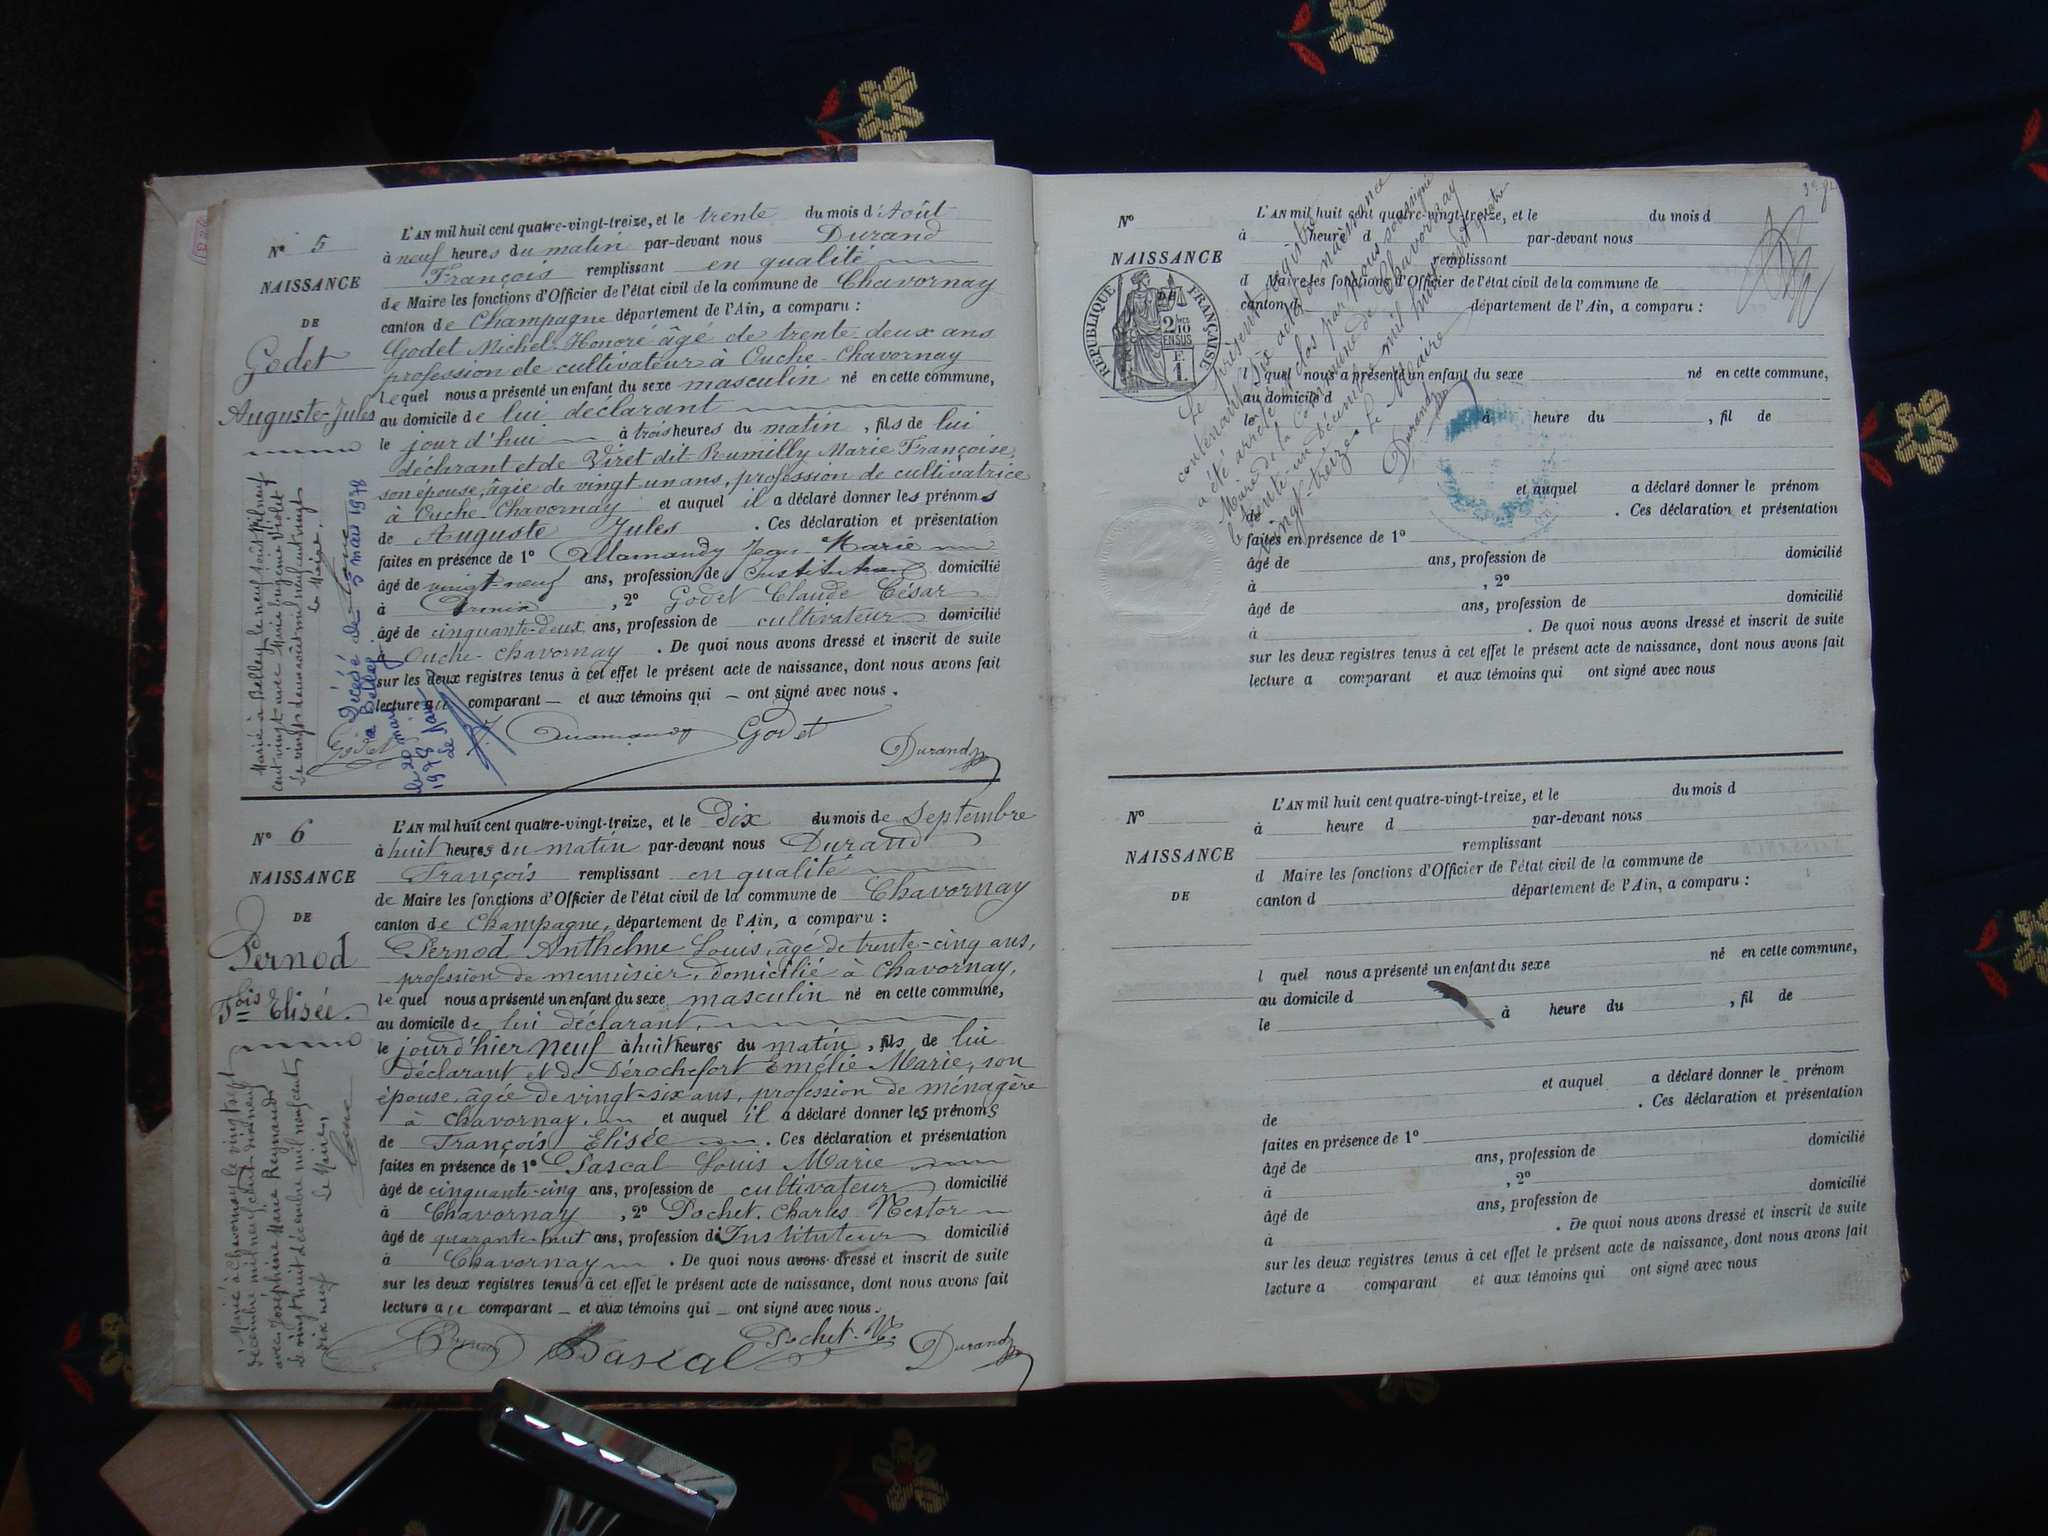 N° 5
NAISSANCE
DE
Godet
Auguste-Jules
L'AN mil huit cent quatre-vingt-treize, et le trente du mois d'Août
à neuf heures du matin par-devant nous Durand
François remplissant en qualité
de Maire les fonctions d'Officier de l'état civil de la commune de Chavornay
canton de Champagne département de l'Ain, a comparu :
Godet Michel-Honoré âgé de trente-deux ans
profession de cultivateur à Ouche-Chavornay
lequel nous a présenté un enfant du sexe masculin né en cette commune,
au domicile de lui déclarant
le jour d'hui à trois heures du matin, fils de lui
déclarant et de Viret dit Rumilly Marie Françoise,
son épouse, âgée de vingt un ans, profession de cultivatrice
à Ouche-Chavornay et auquel il a déclaré donner les prénoms
de Auguste Jules. Ces déclaration et présentation
faites en présence de 1° Allamandy Jean-Marie
âgé de vingt-neuf ans, profession de Instituteur domicilié
à , 2° Godet Claude César
âgé de cinquante-deux ans, profession de cultivateur domicilié
Ouche-Chavornay. De quoi nous avons dressé et inscrit de suite
sur les deux registres tenus à cet effet le présent acte de naissance, dont nous avons fait
lecture au comparant et aux témoins qui ont signé avec nous.
Godet Durand
Marié à Belley le neuf août mil neuf
cent vingt avec Marie Eugénie Violet
le vingt deux août mil neuf cent vingt
Le Maire.
Décédé
à Belley
le 20 mars
1978
5 mai 1978
N° 6
NAISSANCE
DE
Pernod
Fçois Elisée.
L'AN mil huit cent quatre-vingt-treize, et le Dix du mois de Septembre
à huit heures du matin par-devant nous Durand
François remplissant en qualité
de Maire les fonctions d'Officier de l'état civil de la commune de Chavornay
canton de Champagne, département de l'Ain, a comparu :
Pernod Anthelme Louis, âgé de trente-cinq ans,
profession de menuisier, domicilié à Chavornay,
lequel nous a présenté un enfant du sexe masculin né en cette commune,
au domicile de lui déclarant,
le jour d'hier neuf à huit heures du matin, fils de lui
déclarant et de Dérochefort Emélie Marie, son
épouse, âgée de vingt-six ans, profession de ménagère
à Chavornay, et auquel il a déclaré donner les prénoms
de François Elisée. Ces déclaration et présentation
faites en présence de 1° Pascal Louis Marie
âgé de cinquante-cinq ans, profession de cultivateur domicilié
à Chavornay, 2° Pochet Charles Nestor
âgé de quarante-huit ans, profession d'Instituteur domicilié
à Chavornay. De quoi nous avons dressé et inscrit de suite
sur les deux registres tenus à cet effet le présent acte de naissance, dont nous avons fait
lecture au comparant et aux témoins qui ont signé avec nous.
Pascal Pochet. N. Durand
Marié à Chavornay le vingt sept
décembre mil neuf cent dix neuf
avec Joséphine Marie Reynaud
le vingt huit décembre mil neuf cent
dix neuf
Le Maire,
N°
NAISSANCE
RÉPUBLIQUE FRANÇAISE
2 10
EN SUS
F.
1.
L'AN mil huit cent quatre-vingt-treize, et le du mois d
à heure d par-devant nous
remplissant
d Maire les fonctions d'Officier de l'état civil de la commune de
canton d département de l'Ain, a comparu :
l quel nous a présenté un enfant du sexe né en cette commune,
au domicile d
le à heure du , fil de
et auquel a déclaré donner le prénom
de . Ces déclaration et présentation
faites en présence de 1°
âgé de ans, profession de domicilié
à , 2°
âgé de ans, profession de domicilié
à . De quoi nous avons dressé et inscrit de suite
sur les deux registres tenus à cet effet le présent acte de naissance, dont nous avons fait
lecture a comparant et aux témoins qui ont signé avec nous
Le présent registre
contenant six actes de naissance
a été arrêté et clos par nous soussigné
Maire de la Commune de Chavornay
le trente un Décembre mil huit cent quatre
vingt-treize. Le Maire
Durand
N°
NAISSANCE
DE
L'AN mil huit cent quatre-vingt-treize, et le du mois d
à heure d par-devant nous
remplissant
d Maire les fonctions d'Officier de l'état civil de la commune de
canton d département de l'Ain, a comparu :
l quel nous a présenté un enfant du sexe né en cette commune,
au domicile d
le à heure du , fil de
et auquel a déclaré donner le prénom
de . Ces déclaration et présentation
faites en présence de 1°
âgé de ans, profession de domicilié
à , 2°
âgé de ans, profession de domicilié
à . De quoi nous avons dressé et inscrit de suite
sur les deux registres tenus à cet effet le présent acte de naissance, dont nous avons fait
lecture a comparant et aux témoins qui ont signé avec nous